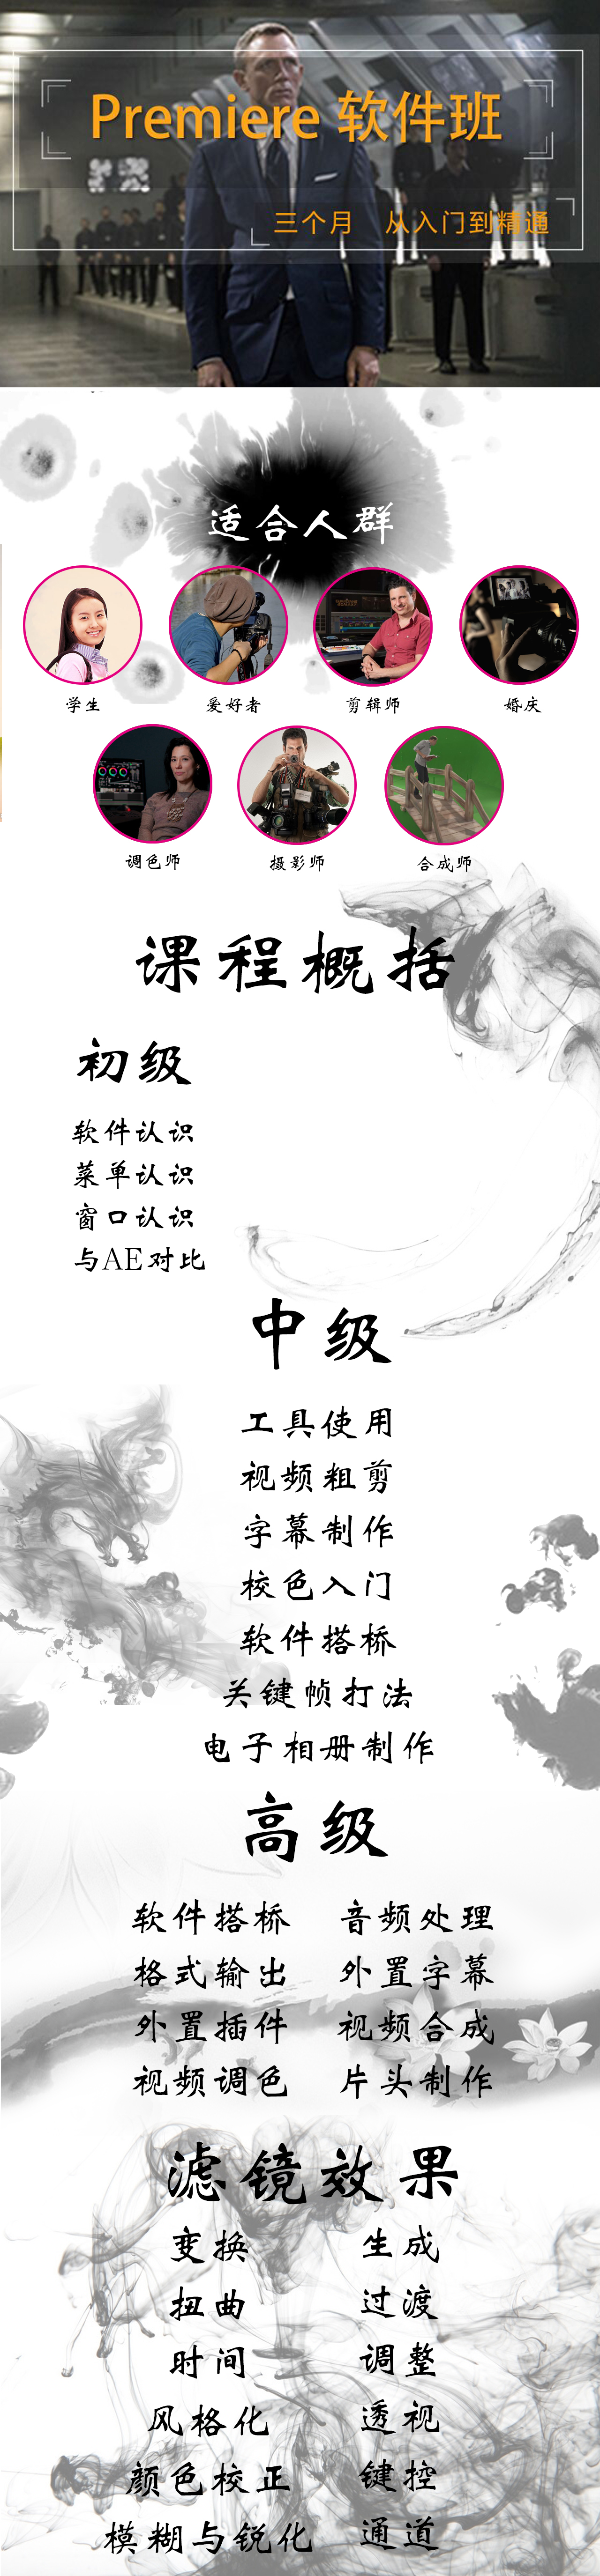 Premiere 软件班
三个月 从入门到精通
适合人群
学生 爱好者 剪辑师 婚庆
调色师 摄影师 合成师
课程概括
初级
软件认识
菜单认识
窗口认识
与AE对比
中级
工具使用
视频粗剪
字幕制作
校色入门
软件搭桥
关键帧打法
电子相册制作
高级
软件搭桥 音频处理
格式输出 外置字幕
外置插件 视频合成
视频调色 片头制作
滤镜效果
变换 生成
扭曲 过渡
时间 调整
风格化 透视
颜色校正 键控
模糊与锐化 通道